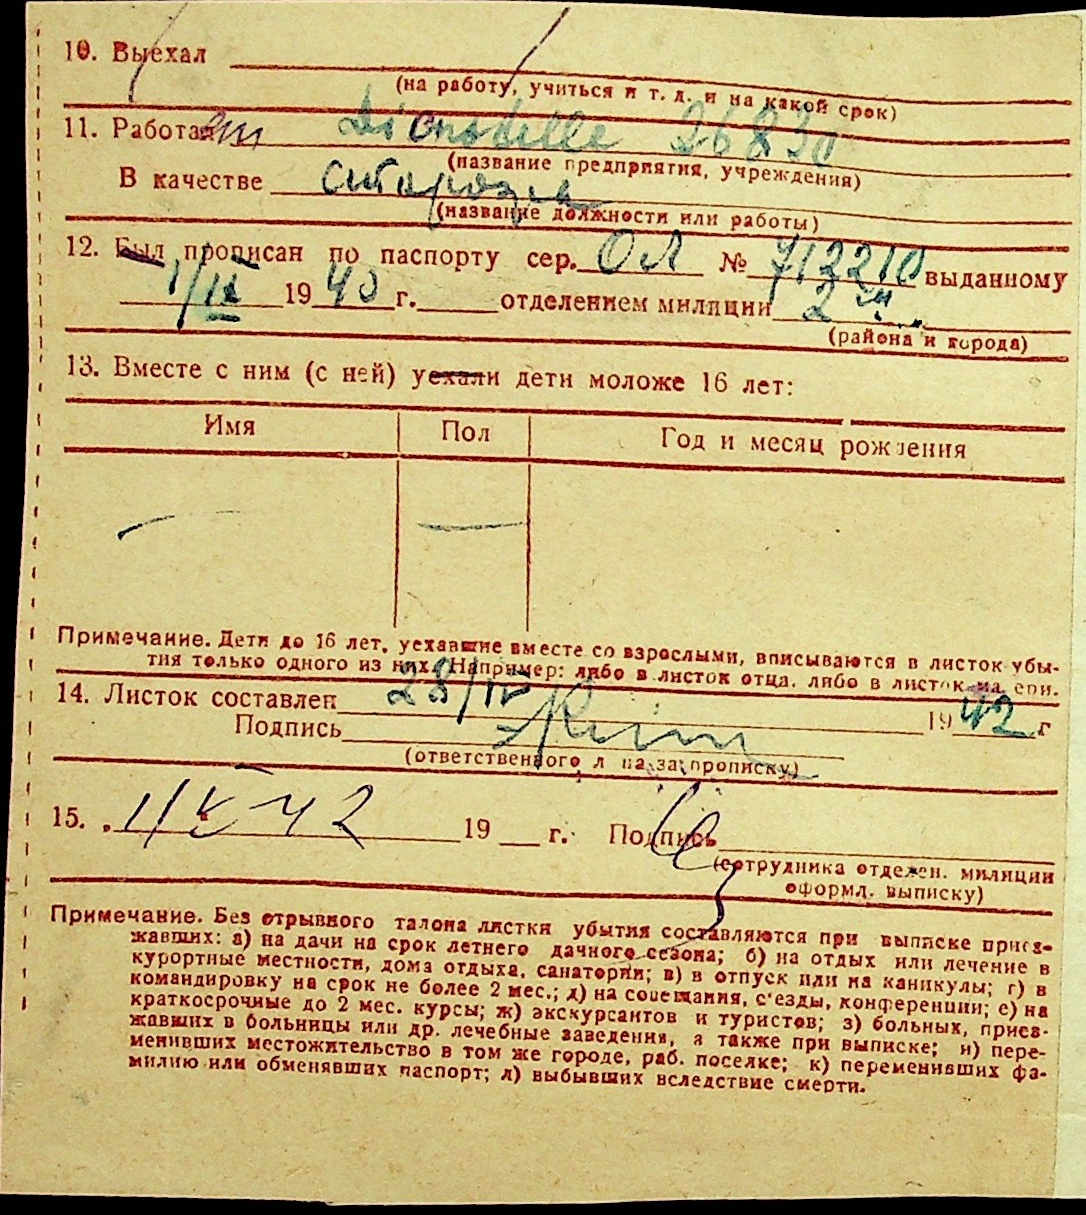 10. Выехал
(на работу, учиться и т. д. и на какой срок)
11. Работает Dienststelle 26830
(название предприятия, учреждения)
В качестве сторожа
(название должности или работы)
12. Был прописан по паспорту сер. ОЛ № 712210 выданному
1/IX 1940 г. отделением милиции 2
(района и города)
13. Вместе с ним (с ней) уехали дети моложе 16 лет:
Имя Пол Год и месяц рождения
Примечание. Дети до 16 лет, уехавшие вместе со взрослыми, вписываются в листок убы-
тия только одного из них. Например: либо в листок отца, либо в листок ма ери.
14. Листок составлен 28/IV 1942 г
Подпись
(ответственного л на за прописку)
15. 1/V 42 19 г. Подпись
(сотрудника отделен. милиции
оформл. выписку)
Примечание. Без отрывного талона листки убытия составляются при выписке приез-
жавших: а) на дачи на срок летнего дачного сезона; б) на отдых или лечение в
курортные местности, дома отдыха, санатории; в) в отпуск или на каникулы; г) в
командировку на срок не более 2 мес.; д) на совещания, с'езды, конференции; е) на
краткосрочные до 2 мес. курсы; ж) экскурсантов и туристов; з) больных, приез-
жавших в больницы или др. лечебные заведения, а также при выписке; и) пере-
менивших местожительство в том же городе, раб. поселке; к) переменивших фа-
милию или обменявших паспорт; л) выбывших вследствие смерти.